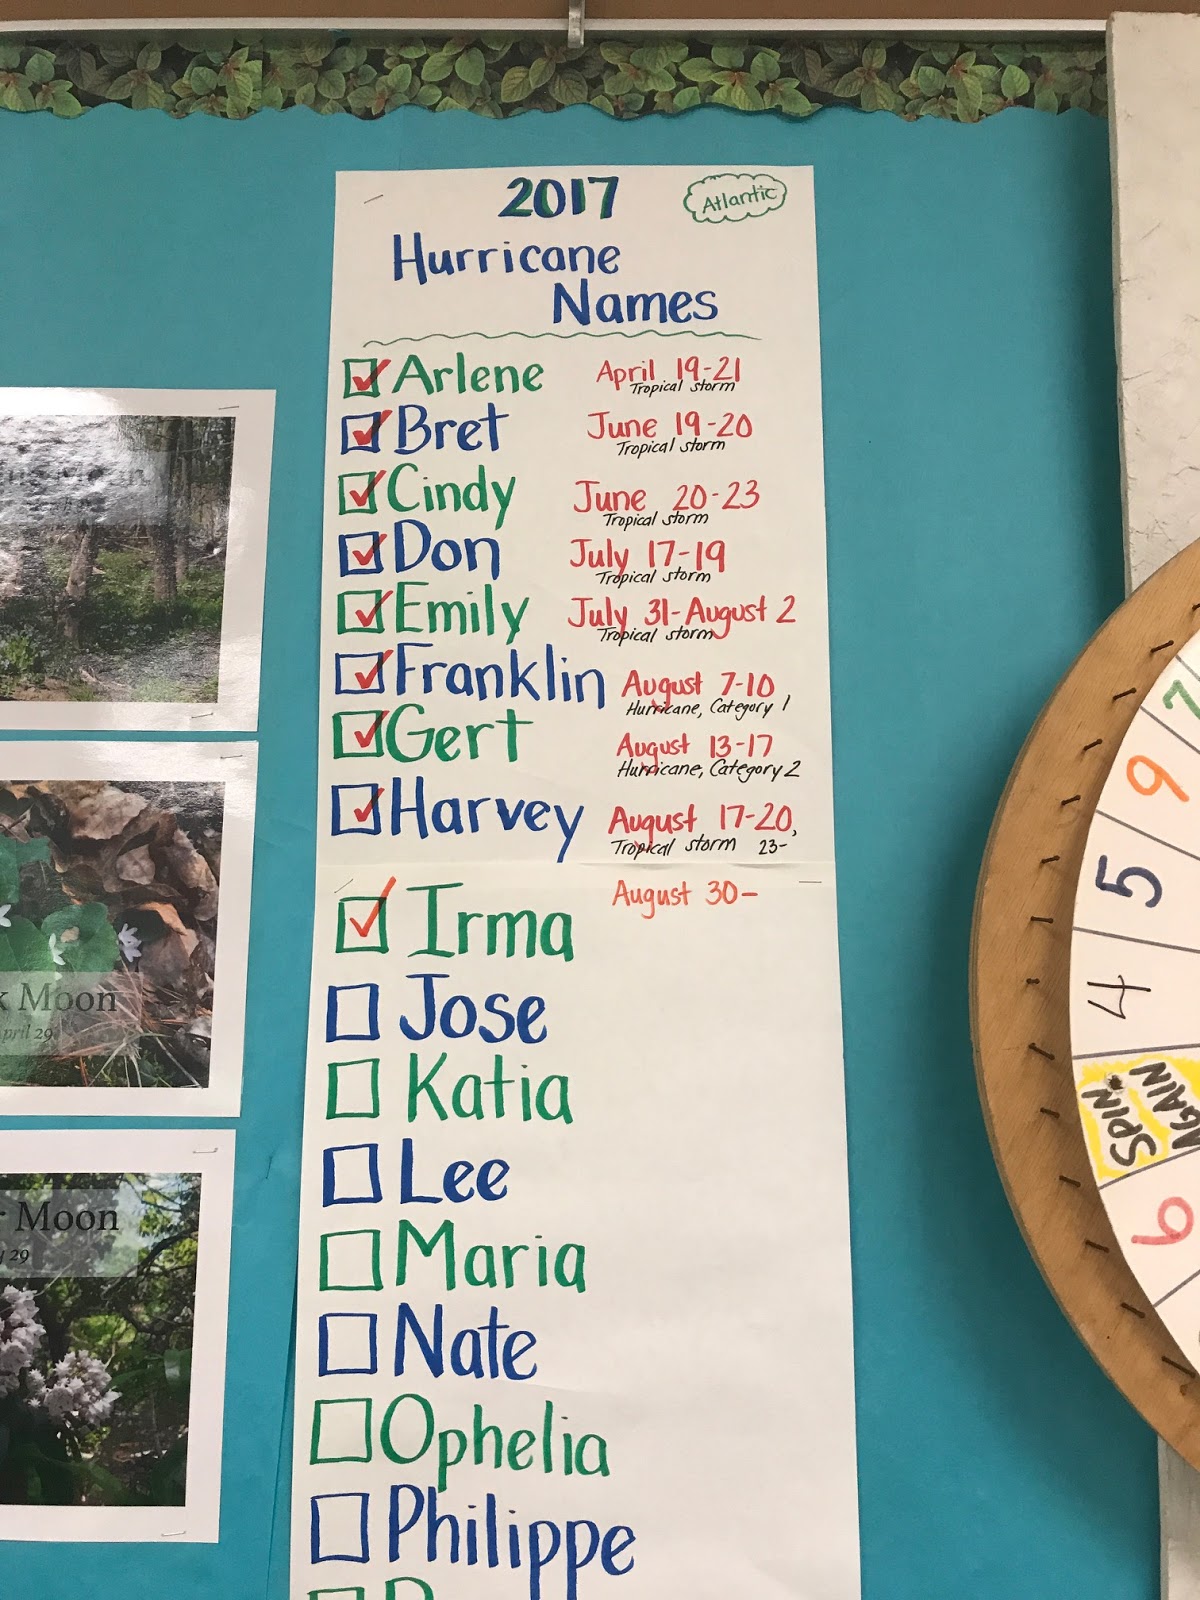 2017
Atlantic
Hurricane
Names
Arlene April 19-21
Tropical storm
Bret June 19-20
Tropical storm
Cindy June 20-23
Tropical storm
Don July 17-19
Tropical storm
Emily July 31-August 2
Tropical storm
Franklin August 7-10
Hurricane, Category 1
Gert August 13-17
Hurricane, Category 2
Harvey August 17-20,
Tropical storm 23-
Irma August 30-
Jose
Katia
Lee
Maria
Nate
Ophelia
Philippe
Moon
April 29
Moon
29
7
9
5
4
SPIN
AGAIN
6